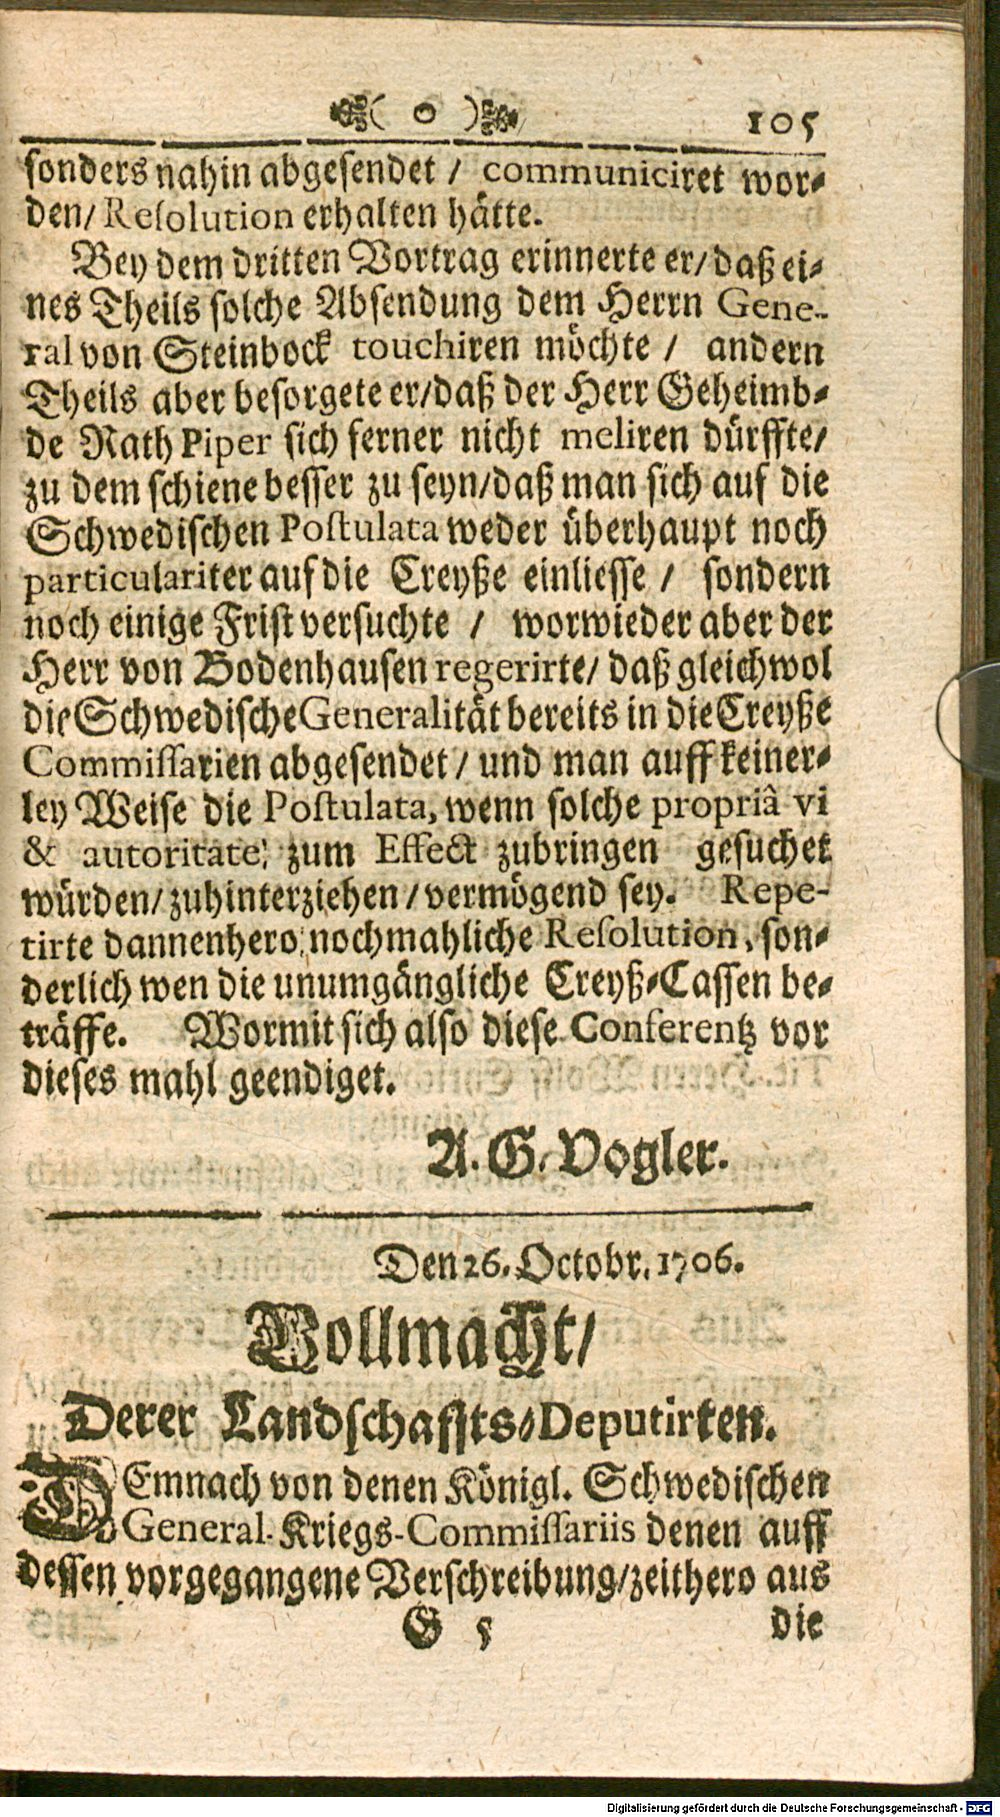 ( o ) 105
sonders nahin abgesendet / communiciret wor-
den/ Resolution erhalten hätte.
Bey dem dritten Vortrag erinnerte er/ daß ei-
nes Theils solche Absendung dem Herrn Gene-
ral von Steinbock touchiren möchte / andern
Theils aber besorgete er/daß der Herr Geheimb-
de Rath Piper sich ferner nicht meliren dürffte/
zu dem schiene besser zu seyn/daß man sich auf die
Schwedischen Postulata weder überhaupt noch
particulariter auf die Creyße einliesse / sondern
noch einige Frist versuchte / worwieder aber der
Herr von Bodenhausen regerirte/ daß gleichwol
die Schwedische Generalität bereits in die Creyße
Commissarien abgesendet / und man auff keiner-
ley Weise die Postulata, wenn solche propriâ vi
& autoritate, zum Effect zubringen gesuchet
würden/ zuhinterziehen / vermögend sey. Repe-
tirte dannenhero nochmahliche Resolution, son-
derlich wen die unumgängliche Creyß-Cassen be-
träffe. Wormit sich also diese Conferentz vor
dieses mahl geendiget.
A. G. Vogler.
Den 26. Octobr. 1706.
Vollmacht/
Derer Landschaffts-Deputirten.
DEmnach von denen Königl. Schwedischen
General-Kriegs-Commissariis denen auff
dessen vorgegangene Verschreibung/zeithero aus
G 5 die
Digitalisierung gefördert durch die Deutsche Forschungsgemeinschaft - DFG